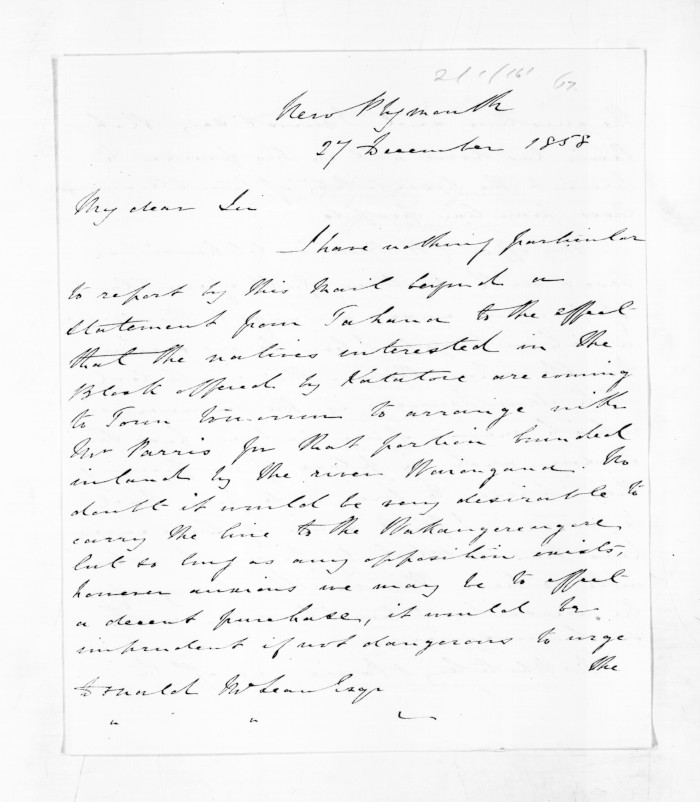 New Plymouth
27 December 1858
My dear Sir
I have nothing particular
to report by this Mail beyond a
statement from Tahana to the effect
that the natives interested in the
Block offered by Katatore are coming
to Town tomorrow to arrange with
Mr Parris for that portion bounded
inland by the river Waiongana. No
doubt it would be very desirable to
carry the line to the
but so long as any opposition exists,
however anxious we may be to effect
a decent purchase, it would be
imprudent if not dangerous to urge
the
Donald McLean Esqr
" " "